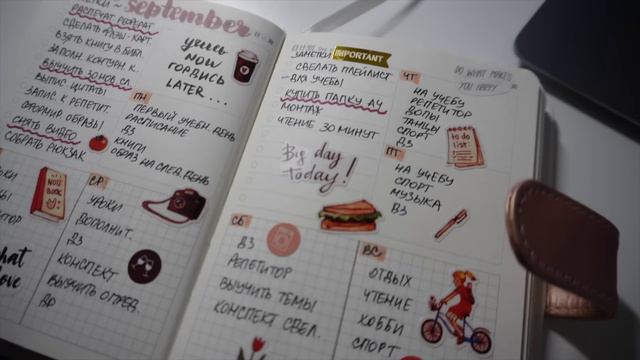 September
РАСПЕЧАТ. РЕФЕРАТ
СДЕЛАТЬ ФИЗ-ХАРТ.
ВЗЯТЬ КНИГУ В БИБЛ.
ЗАПОЛН. КОНТУРН. К.
ВЫУЧИТЬ 30 НОВ. СЛ.
ВЫПИС. ЦИТАТЫ
ЗАПИС. К РЕПЕТИТ.
ОБРАЗЫ
СНЯТЬ ВИДЕО
СОБРАТЬ РЮКЗАК
УЧИСЬ
NOW
ГОРДИСЬ
LATER....
ПН
ПЕРВЫЙ УЧЕБН. ДЕНЬ
РАСПИСАНИЕ
ДЗ
КНИГИ
ОБРАЗ НА СЛЕД. ДЕНЬ
NOTE
BOOK
СР
УРОКИ
ДОПОЛНИТ.
ДЗ
КОНСПЕКТ
ВЫУЧИТЬ ОПРЕД.
ЗАМЕТКИ IMPORTANT
СДЕЛАТЬ ПЛЕЙЛИСТ
ДЛЯ УЧЕБЫ
КУПИТЬ ПАПКУ А4
МОНТАЖ
ЧТЕНИЕ 30 МИНУТ
Big day
today!
DO WHAT MAKES
YOU HAPPY
ЧТ
НА УЧЕБУ
РЕПЕТИТОР
ДОПЫ
ТАНЦЫ
СПОРТ
ДЗ
to do
list:
ПТ
НА УЧЕБУ
СПОРТ
МУЗЫКА
ДЗ
СБ
ДЗ
РЕПЕТИТОР
ВЫУЧИТЬ ТЕМЫ
КОНСПЕКТ СВЕЛ.
ВС
ОТДЫХ
ЧТЕНИЕ
ХОББИ
СПОРТ